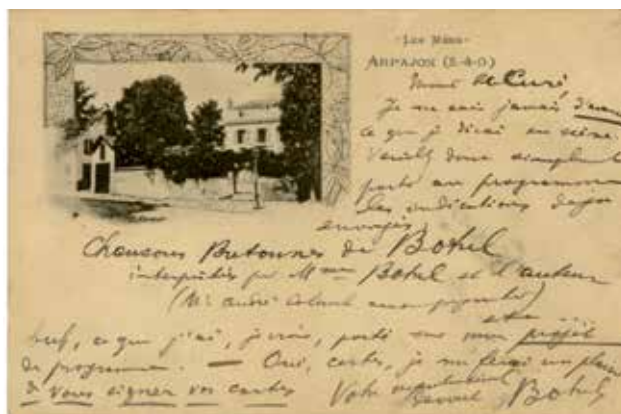 - Les Nébo -
ARPAJON (S.-&-O.)
Mons. le Curé
Je ne sais jamais d'avance
ce que je dirai en scène.
Veuillez donc simplement
porter au programme
les indications déjà
envoyées
Chansons Bretonnes de Botrel
interprétés par Mme Botrel et l'auteur
(Mr André Colomb accompagnateur)
etc...
bref, ce que j'ai, je crois, porté sur mon projet
de programme. — Oui, certes, je me ferai un plaisir
de vous signer vos cartes Votre
dévoué, Botrel